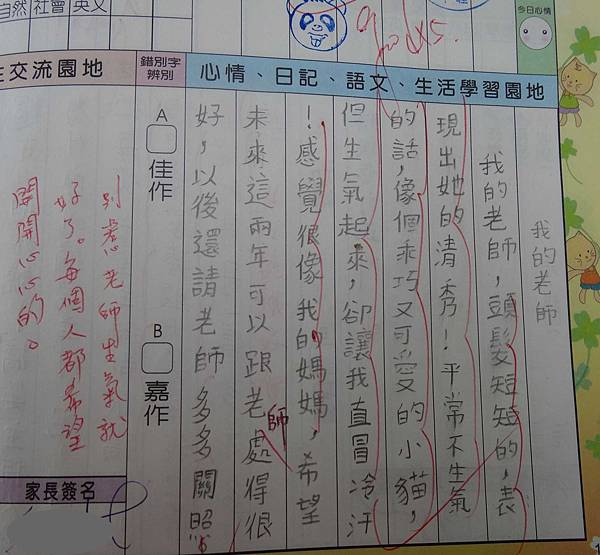 自然 社會 英文
今日心情
生交流園地
錯別字
辨別
心情、日記、語文、生活學習園地
我的老師
我的老師,頭髮短短的,表
現出她的清秀!平常不生氣
的話,像個乖巧又可愛的小貓,
但生氣起來,卻讓我直冒冷汗
!感覺很像我的媽媽,希望
未來這兩年可以跟老師處得很
好,以後還請老師多多關照
A
佳作
B
嘉作
別惹老師生氣就
好了。每個人都希望
開開心心的。
家長簽名